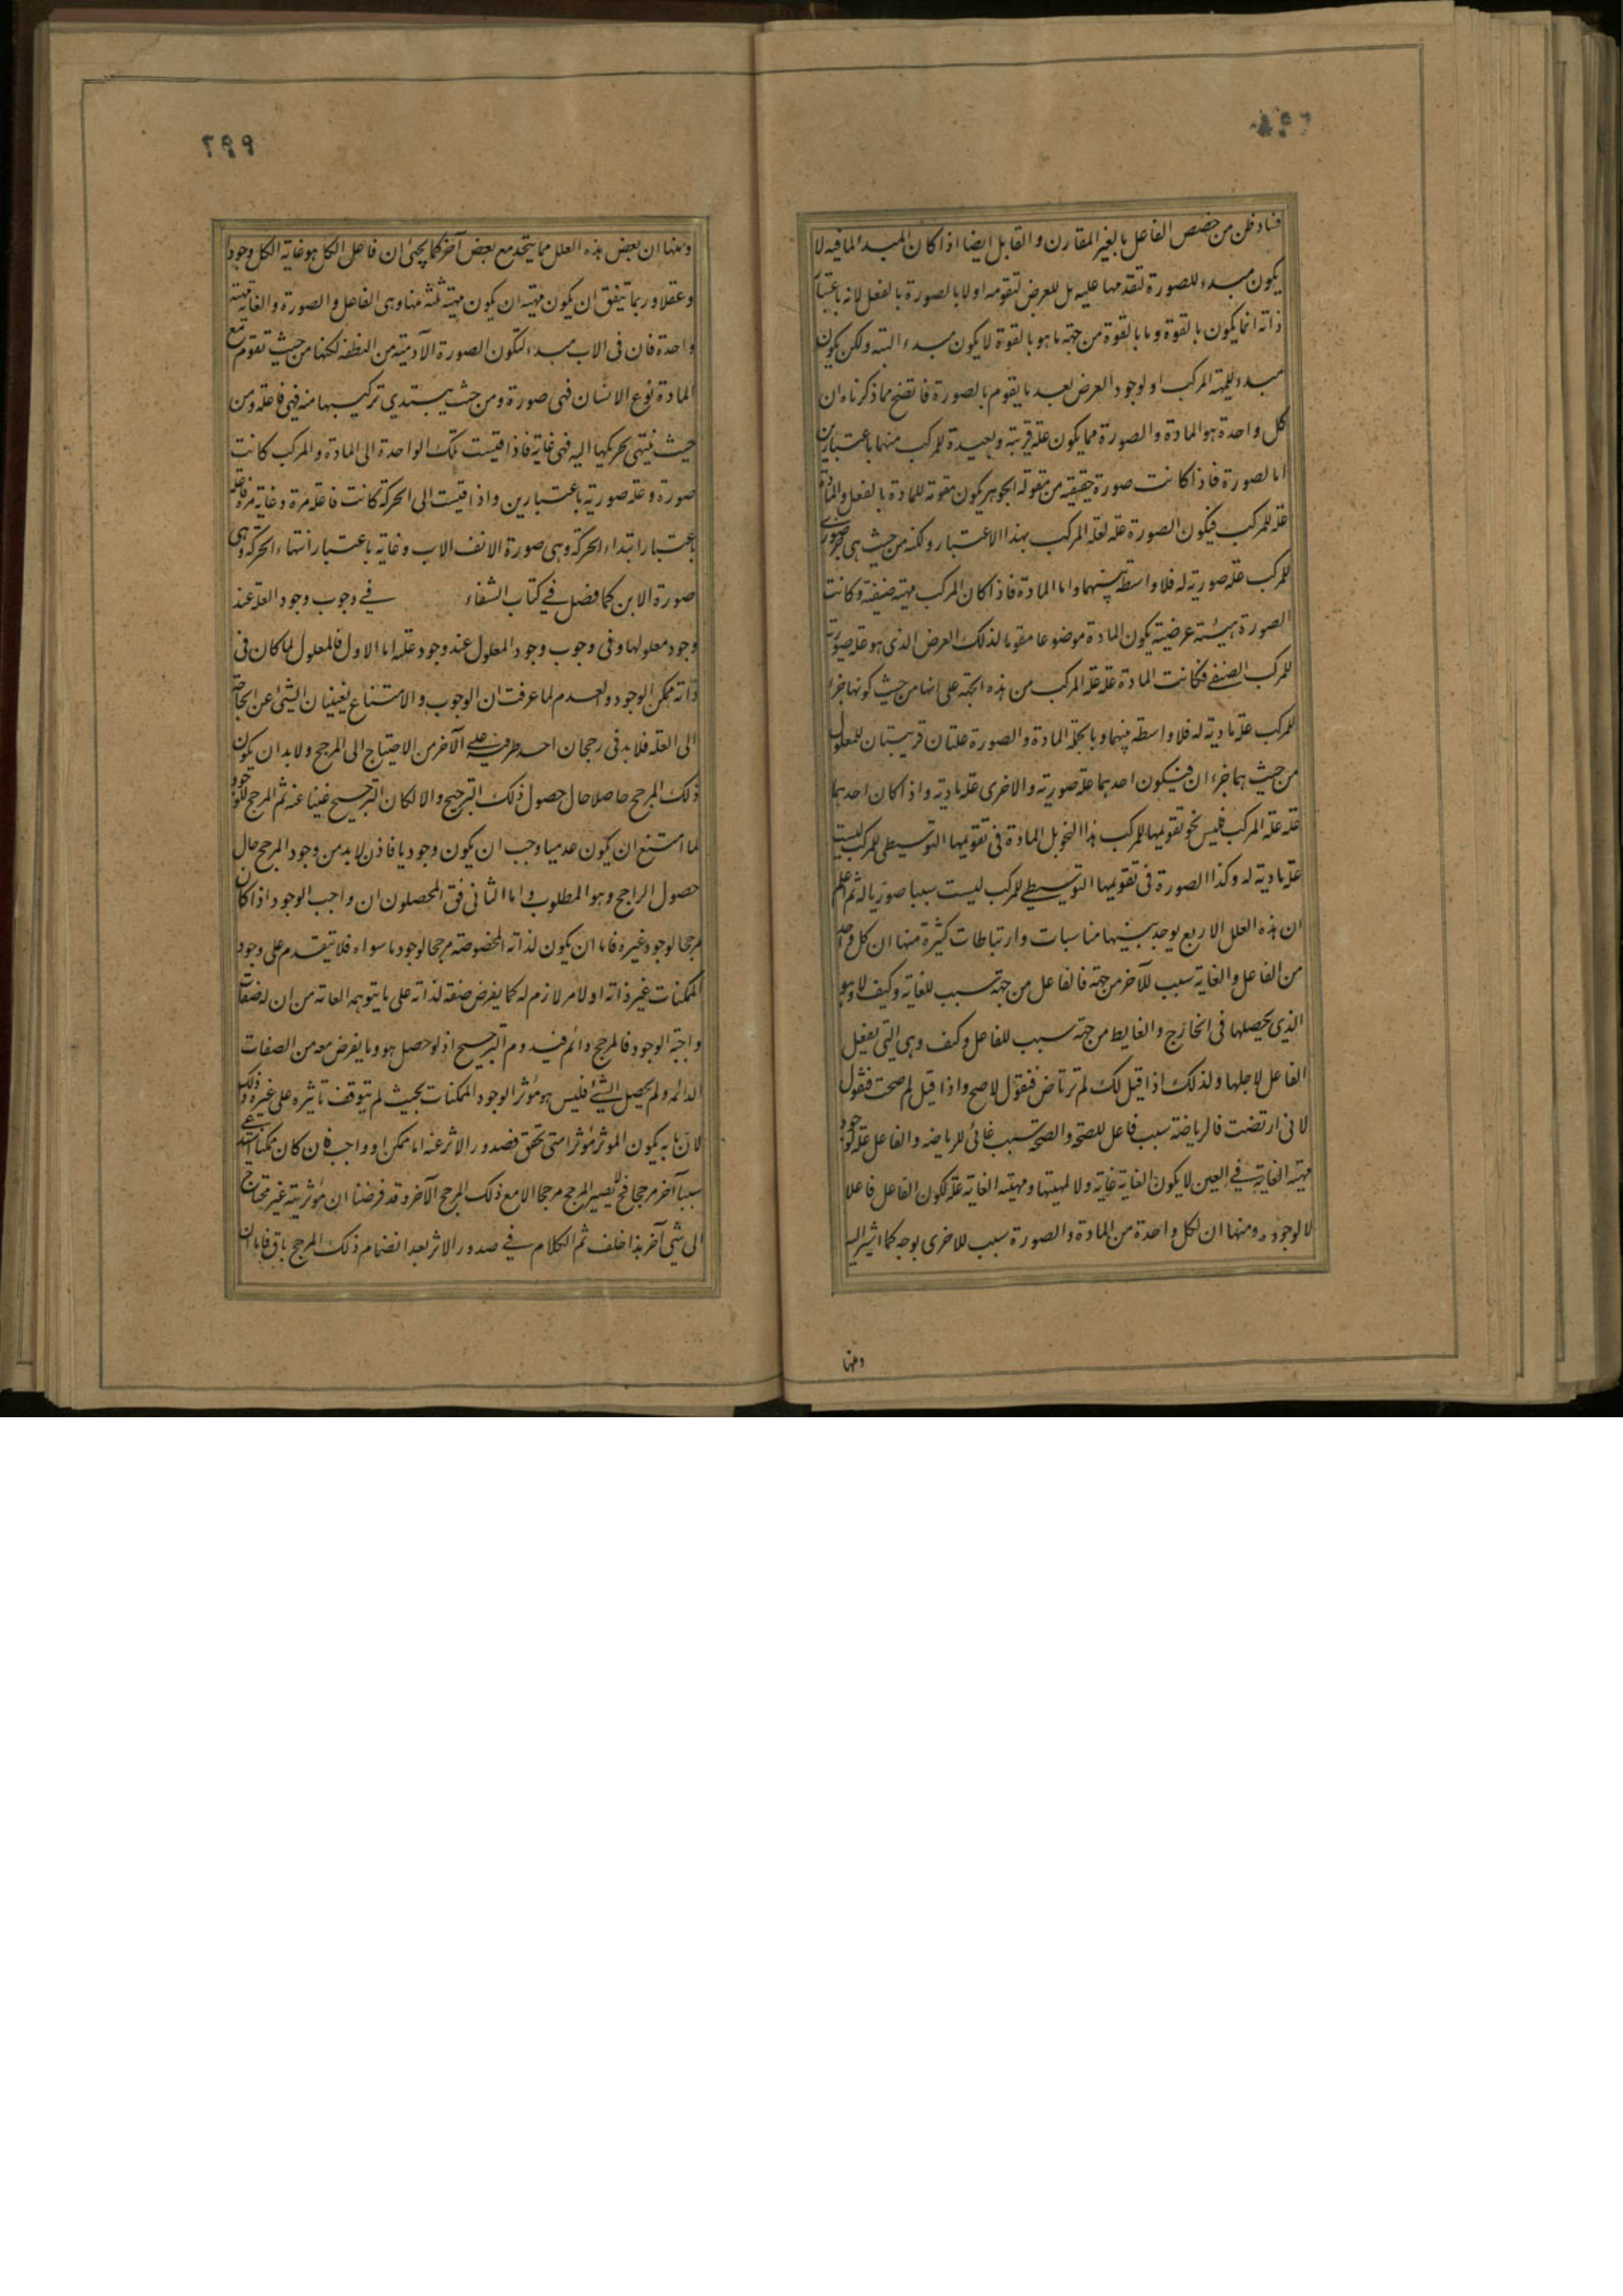 فساد ظن من خصص الفاعل بالغير المقارن و القابل ايضا اذا كان المبدء لما فيه لا
يكون مبدء للصورة لتقدمها عليه بل للعرض لتقومه اولا بالصورة بالفعل لانه باعتبار
ذاته انما يكون بالقوة و ما بالقوة من جهة ما هو بالقوة لا يكون مبدء البته ولكن يكون
مبدء للمهية المركب او لوجود العرض بعد ما يقوم بالصورة فاتضح مما ذكرناه ان
كل واحدة هو المادة و الصورة مما يكون علة قريبة و بعيدة للمركب منهما باعتبارين
اما لصورة فاذا كانت صورة حقيقية من مقولة الجوهر يكون مقومة للمادة بالفعل والمادة
علة للمركب فيكون الصورة علة لعلة المركب بهذا الاعتبار ولكنه من حيث هي جزء صوري
للمركب علة صورية له فلا واسطة بينهما و اما المادة فاذا كان المركب مهية صنفية و كانت
الصورة هيئته عرضية يكون المادة موضوعا مقوما لذلك العرض الذى هو علة صورية
للمركب الصنفي فكانت المادة علة علة المركب من هذه الجهة على انها من حيث كونها جزء
للمركب علة مادية له فلا واسطة بينهما و بالجملة المادة و الصورة علتان قريبتان للمعلول
من حيث هما جزءان فيكون احدهما علة صورية والاخرى علة مادية و اذا كان احدهما
علة علة المركب فليس نحو تقويمها للمركب هذا النحو بل المادة فى تقويمها التوسيطى للمركب ليست
علة مادية له وكذا الصورة فى تقويمها التوسيطي للمركب ليست سببا صوريا له ثم اعلم
ان هذه العلل الاربع يوجد بينها مناسبات و ارتباطات كثيرة منها ان كل واحد
من الفاعل والغاية سبب للآخر من جهة فالفاعل من جهة سبب للغاية وكيف لا وهو
الذي يحصلها فى الخارج و الغاية من جهة سبب للفاعل وكيف وهى التى يفعل
الفاعل لاجلها ولذلك اذا قيل لك لم ترتاض فنقول لاصح واذا قيل لم صحت فنقول
لانى ارتضت فالرياضة سبب فاعل للصحة والصحة سبب غائى للرياضه والفاعل علة لوجود
مهية الغاية في العين لا يكون الغاية غاية ولا لمهيتها ومهية الغاية علة لكون الفاعل فاعلا
لا لوجوده ومنها ان لكل واحدة من المادة والصورة سبب للاخرى بوجه كما اشير اليه
ومنها
٢٩٩
ومنها ان بعض هذه العلل مما يتحد مع بعض آخر كما يجئ ان فاعل الكل هو غاية الكل وجودا
وعقلا وربما تتفق ان يكون مهية ان يكون مهية ثلثه منها وهى الفاعل والصورة والغاية مهية
واحدة فان فى الاب مبدء لتكون الصورة الآدمية من النطفة لكنها من حيث تقوم مع
المادة نوع الانسان فهى صورة ومن حيث يبتدي تركيبها منه فهى فاعلة ومن
حيث ينتهى تحريكها اليه فهى غاية فاذا قيست تلك الواحدة الى المادة والمركب كانت
صورة وعلة صورية باعتبارين واذا قيست الى الحركة كانت فاعلة مرة وغاية مرة فاعلة
باعتبار ابتداء الحركة وهى صورة الانف الاب وغاية باعتبار انتهاء الحركة وهى
صورة الابن كما فصل في كتاب الشفاء في وجوب وجود العلة عند
وجود معلولها وفى وجوب وجود المعلول عند وجود علته اما الاول فالمعلول لما كان فى
ذاته ممكن الوجود والعدم لما عرفت ان الوجوب والامتناع يغنيان الشئ عن الحاجة
الى العلة فلا بد فى رجحان احد طرفيه على الآخر من الاحتياج الى المرجح ولا بد ان يكون
ذلك المرجح حاصلا حال حصول ذلك الترجيح والا لكان الترجيح غنيا عنه ثم المرجح للوجود
لما امتنع ان يكون عدميا وجب ان يكون وجوديا فاذن لا بد من وجود المرجح حال
حصول الراجح وهو المطلوب و اما الثانى فق المحصلون ان واجب الوجود اذا كان
مرجحا لوجود غيره فاما ان يكون لذاته المخصوصة مرجحا لوجود ما سواه فلا يتقدم على وجود
الممكنات غير ذاته او لامر لازم له كما يفرض صفة لذاته على ما يتوهمه العامة من ان له صفات
واجبة الوجود فالمرجح دائم فيدوم الترجيح اذ لو حصل هو وما يفرض معه من الصفات
الدائمه ولم يحصل الشئ فليس هو مؤثرا لوجود الممكنات بحيث لم يتوقف تاثيره على غيره وذلك
لان ما به يكون المؤثر مؤثرا متى تحقق فصدور الاثر عنه اما ممكن او واجب فان كان ممكنا استدعى
سببا آخر مرجحا فح لا يصير المرجح مرجحا الا مع ذلك المرجح الآخر وقد فرضنا ان مؤثريته غير محتاج
الى شئ آخر هذا خلف ثم الكلام في صدور الاثر بعد انضمام ذلك المرجح باق فاما ان